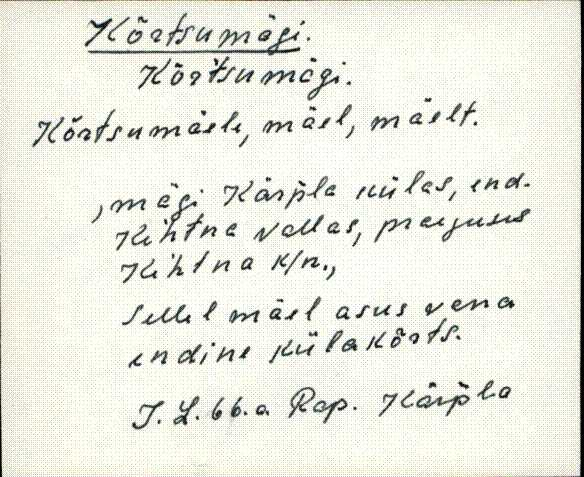 Kõrtsumägi.
Kõrtsumägi.
Kõrtsumäele, mäel, mäelt.
, mägi Kärpla külas, end.
Kehtna vallas, praeguses
Kehtna k/n.,
Sellel mäel asus vana
endine külakõrts.
J. L. 66. a Rap. Kärpla